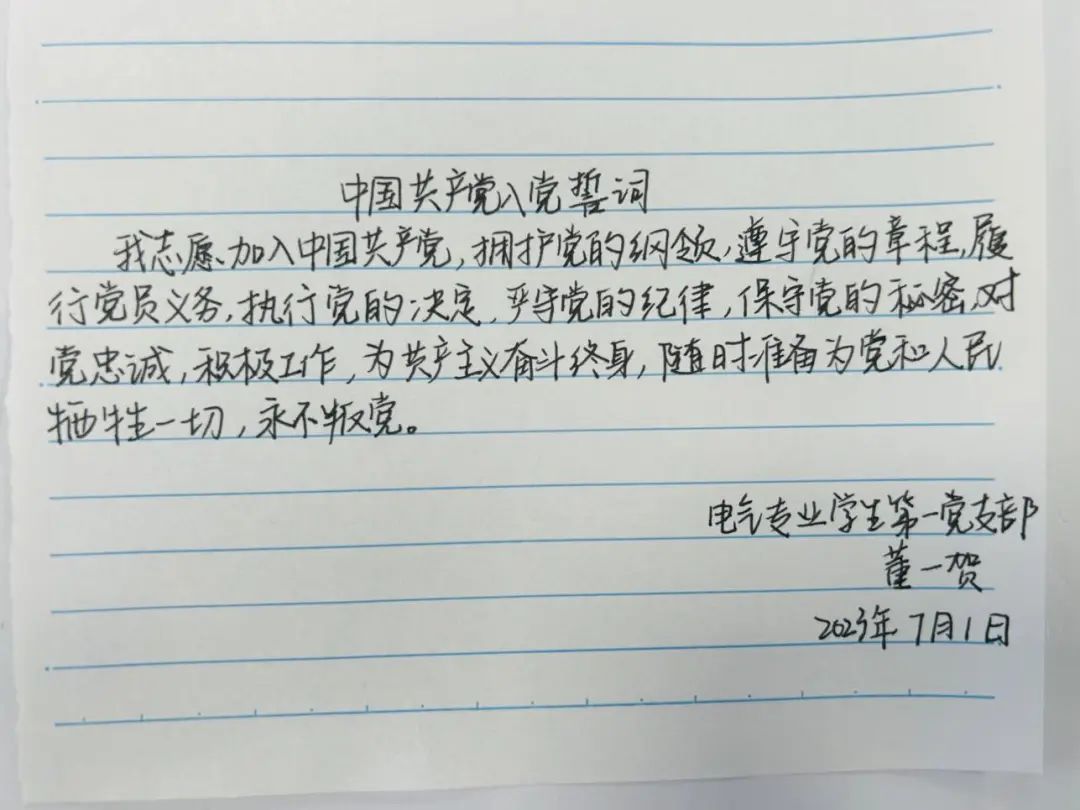 中国共产党入党誓词
我志愿加入中国共产党,拥护党的纲领,遵守党的章程,履
行党员义务,执行党的决定,严守党的纪律,保守党的秘密,对
党忠诚,积极工作,为共产主义奋斗终身,随时准备为党和人民
牺牲一切,永不叛党。
电气专业学生第一党支部
董一贺
2023年7月1日